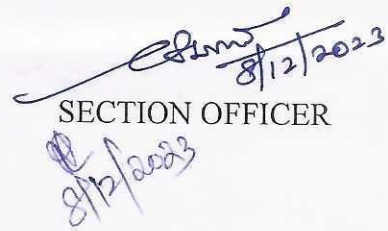 8/12/2023
SECTION OFFICER
8/12/2023